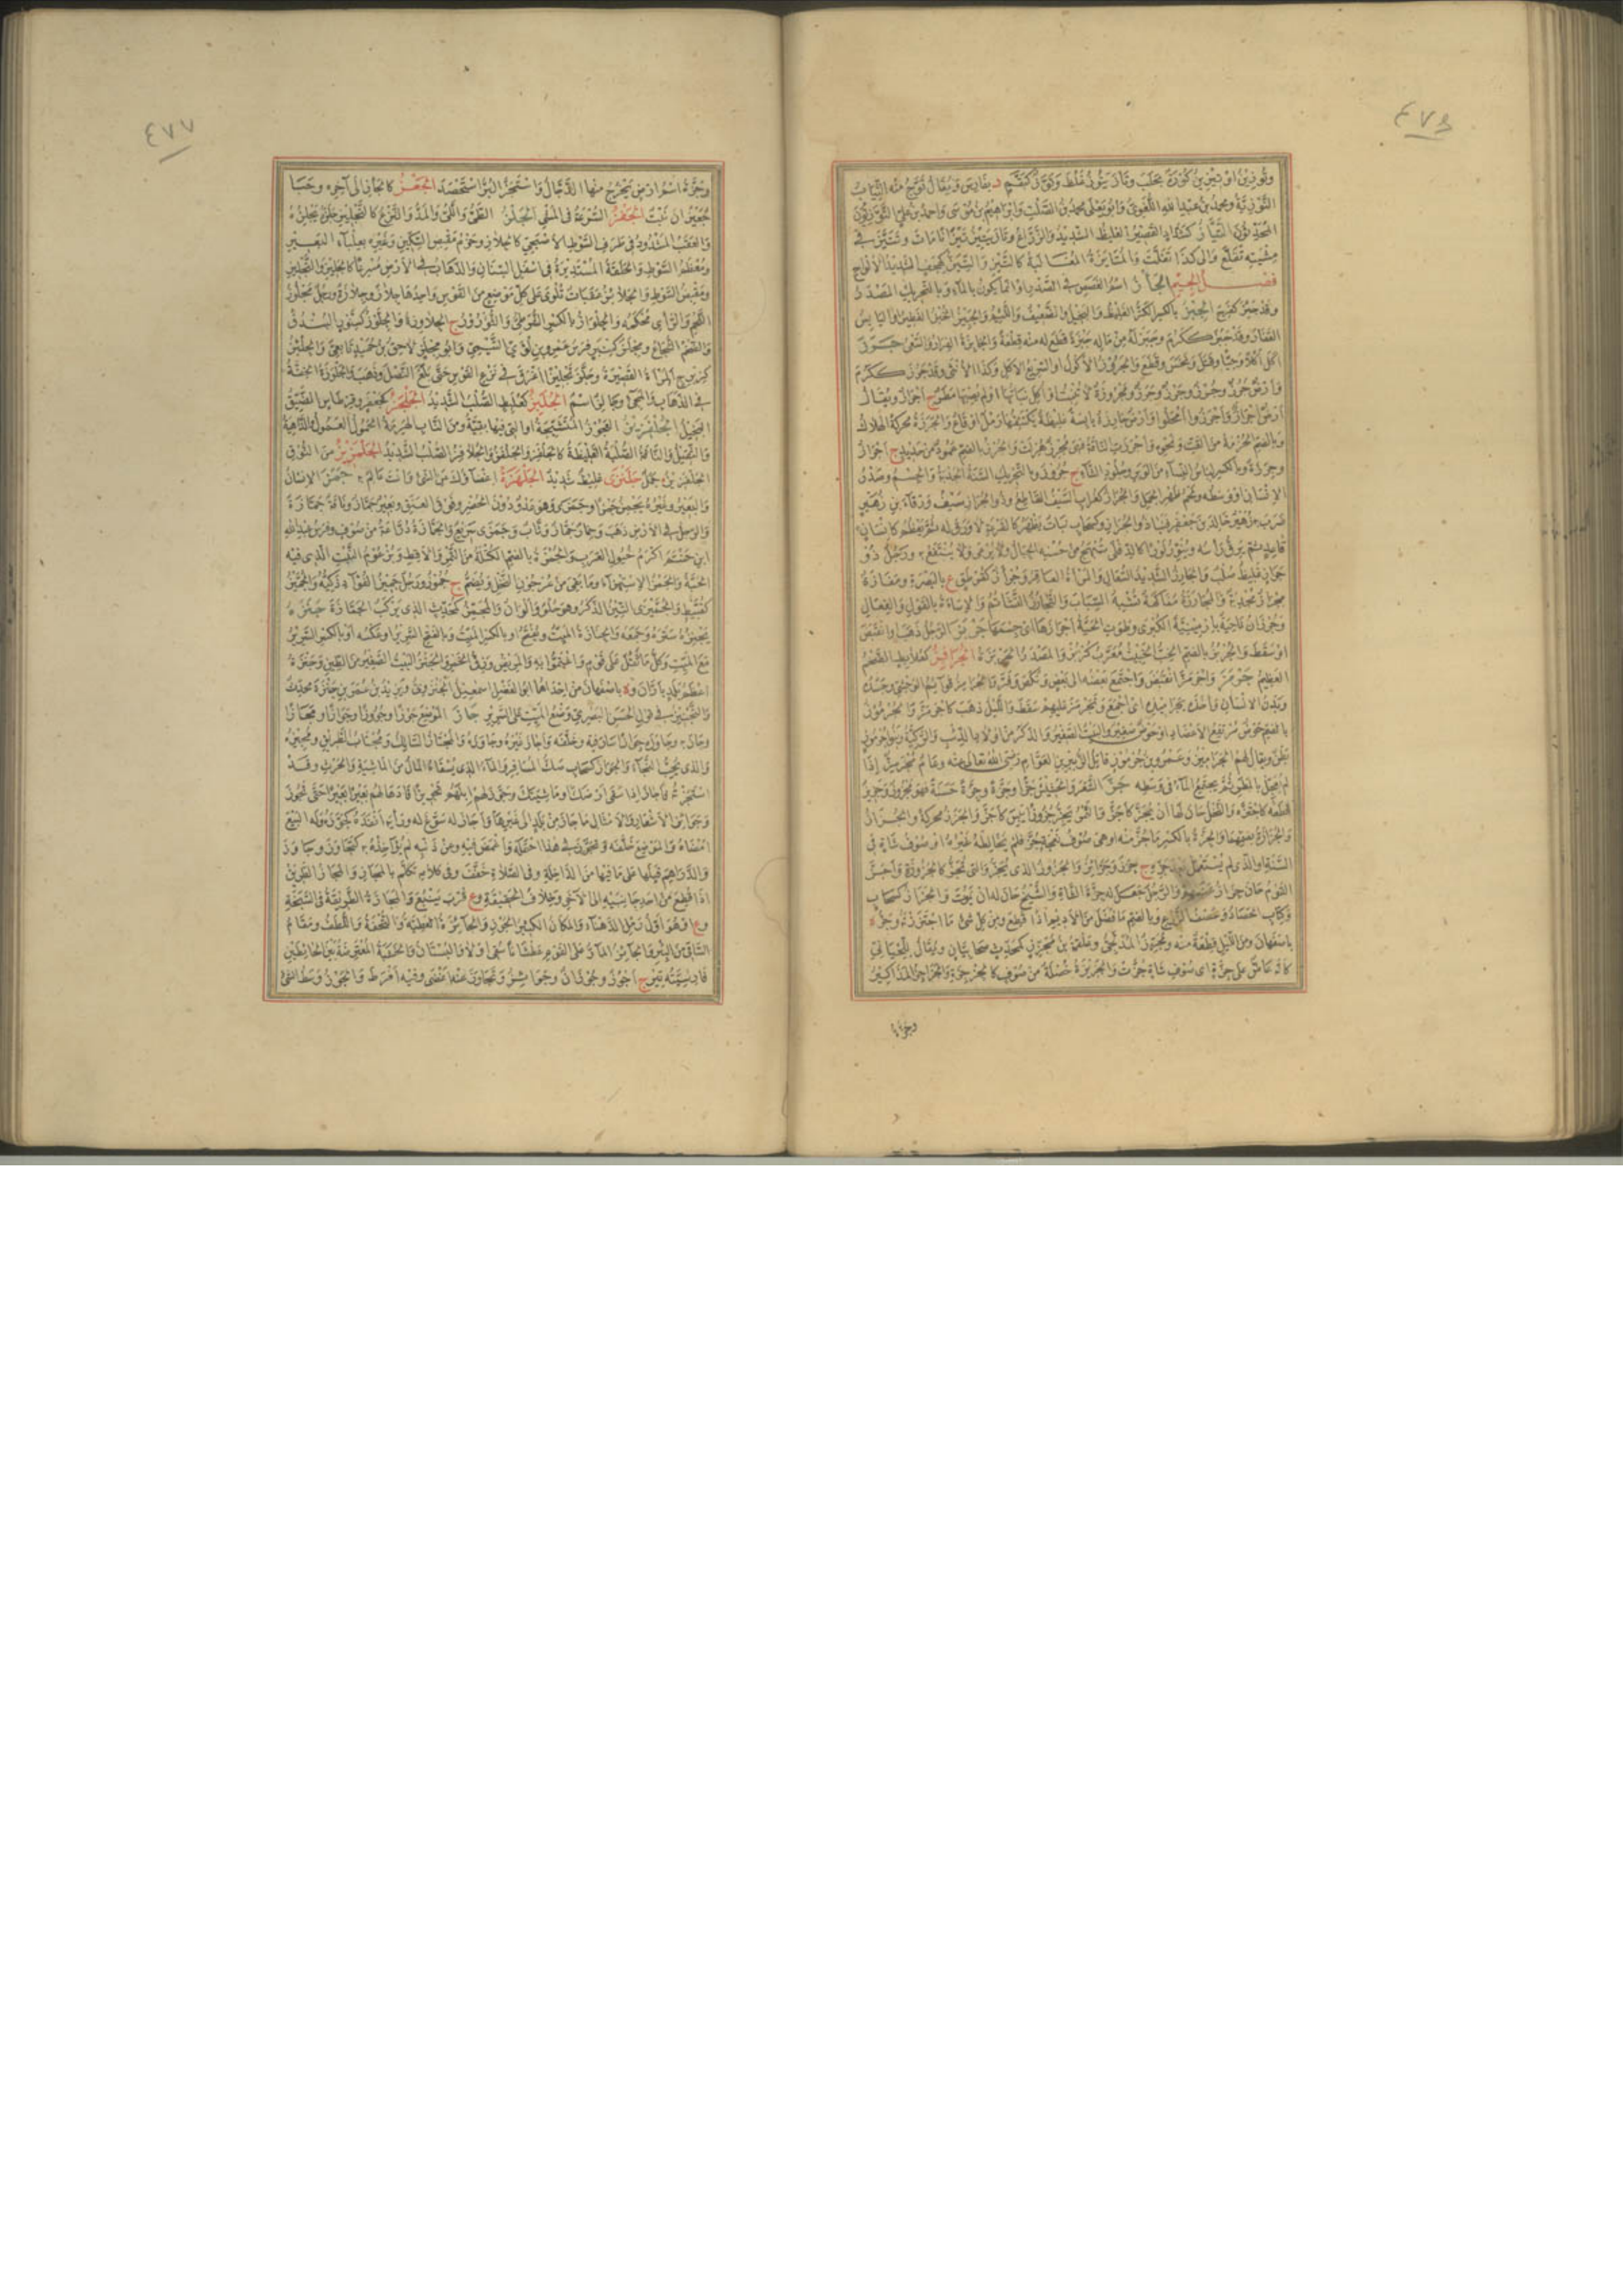 ٤٧٦
وتوزين او تيزين كورة بحلب وتاز يتوز غلظ وتوز كبقم د بفارس ويقال توج منه الثياب
التوزية ومحمد بن عبد الله اللغوي وابو يعلى محمد بن الصلت وابراهيم بن موسى واحمد بن علي التوزيون
المحدثون التياز كشداد القصير الغليظ الشديد والزراع وتاز يتيز تيزانا مات وتتيز في
مشيته تقلع والى كذا تفلت والمتايزة المغالبة كالتيز والتيز كهجف الشديد الالواح
فصل الجيم الجأز اسم الغصص في الصدر او انما يكون بالماء وبالتحريك المصدر
وقد جئز كفرح الجبز بالكسر الكز الغليظ والبخيل والضعيف واللئيم والجبيز الخبز الفطير او اليابس
القفار وقد جبز ككرم وجبز له من ماله جبزة قطع له منه قطعة والجأبزة الفرار والسعي جرز
اكل اكلا وحيا وقتل ونخس وقطع والجروز الاكول او السريع الاكل وكذا الانثى وقد جرز ككرم
وارض جرز وجرز وجرز وجرز ومجروزة لا تنبت او اكل نباتها او لم يصبها مطر ج اجراز ويقال
ارض اجراز واجرزوا امحلوا وارض جارزة يابسة غليظة يكتنفها رمل او قاع والجرزة محركة الهلاك
وبالضم الحزمة من القت ونحوه واجرزت الناقة فهي مجرز هزلت والجرز بالضم عمود من حديد ج اجراز
وجرزة وبالكسر لباس النساء من الوبر وجلود الشاء ج جروز وبالتحريك السنة الجدبة والجسم وصدر
الانسان او وسطه ولحم ظهر الجمل والجراز كغراب السيف القاطع وذو الجراز سيف ورقاء بن زهير
ضرب به زهير خالد بن جعفر فنبا ذو الجراز وكسحاب نبات يظهر كالقرعة لا ورق له ثم يعظم كانسان
قاعد ثم يرق راسه وينور نورا كالدفلى تبهج من حسنه الجبال ولا يرعى ولا ينتفع به ورجل ذو
جراز غليظ صلب والجارز الشديد السعال والمرأة العاقر وجرزان كعثمان ع بالبصرة ومفازة
مجراز مجدبة والمجارزة مفاكهة تشبه السباب والتجارز التشاتم والاساءة بالقول والفعال
وجرزان ناحية بارمينية الكبرى وطوت الحية اجرازها اي جسمها جربز الرجل ذهب او انقبض
او سقط والجربز بالضم الخب الخبيث معرب كربز والمصدر الجربزة الجرافز كعلابط الضخم
العظيم جرمز واجرمز انقبض واجتمع بعضه الى بعض ونكص وفر والجراميز قوائم الوحشي وجسده
وبدن الانسان واخذه بجراميزه اي اجمع وتجرمز عليهم سقط والليل ذهب كاجرمز والجرموز
بالضم حوض مرتفع الاعضاد او حوض صغير والبيت الصغير والذكر من اولاد الذئب والركية وبنو جرموز
بطن ويقال لهم الجراميز وعمرو بن جرموز قاتل الزبير بن العوام رضي الله تعالى عنه وعام مجرمز اذا
لم يعجل بالمطر ثم يجتمع الماء في وسطه جز الشعر والحشيش جزا وجزة وجزة حسنة فهو مجزوز وجزيز
قطعه كاجتزه والنخل حان لها ان يجز كاجز والتمر يجز جزوزا يبس كاجز والجزز محركة والجزاز
والجزازة بضمهما والجزة بالكسر ما جز منه او هي صوف نعجة جز فلم يخالطه غيره او صوف شاة في
السنة او الذي لم يستعمل بعد جزه ج جزز وجزائز والجزوز الذي يجز والتي تجز كالجزوزة واجز
القوم حان جزاز غنمهم والرجل جعل له جزة الشاة والشيخ حان له ان يموت والجزاز كسحاب
وكتاب الحصاد وعصف الزرع وبالضم ما فضل من الاديم اذا قطع ومن كل شئ ما اجتززته وجزة
باصفهان ومن الليل قطعة منه ومجزز المدلجي وعلقمة بن مجزز كمحدث صحابيان ويقال للحياني
كانه عاض على جزة اي صوف شاة جزت والجزيزة خصلة من صوف كالجزجزة والجزاجز المذاكير
وجزة
٤٧٧
وجزة اسم ارض يخرج منها الدجال واستجز البر استحصد الجعز كالجأز الى آخره وجبا
جعيزان نبت الجفز السرعة في المشي الجلز الطي واللي والمد والنزع كالتجليز جلزه يجلزه
والعقب المشدود في طرف السوط الاصبحي كالجلاز وحزم مقبض السكين وغيره بعلباء البعير
ومعظم السوط والحلقة المستديرة في اسفل السنان والذهاب في الارض مسرعا كالجليز والتجليز
ومقبض السوط والجلائز عقبات تلوى على كل موضع من القوس واحدها جلاز وجلازة ورجل مجلوز
اللحم والراي محكمه والجلواز بالكسر الشرطي والثؤرور ج الجلاوزة والجلوز كسنور البندق
والضخم الشجاع ومجلز كمنبر فرس عمرو بن لؤي التيمي وابو مجلز لاحق بن حميد تابعي والجليز
كزبرج المراة القصيرة وجلز تجليزا اغرق في نزع القوس حتى بلغ النصل وذهب والجلوزة الخفة
في الذهاب والمجئ وجالز اسم الجلبز كعلبط الصلب الشديد الجلحز كجعفر وقرطاس الضيق
البخيل الجلفزيز العجوز المتشنجة او التي فيها بقية ومن الناب الهرمة الحمول العمول والداهية
والثقيل والناقة الصلبة الغليظة كالجلفز والجلفز والجلافز الصلب الشديد الجلمزيز من النوق
الجلفزيز جمل جلنزى غليظ شديد الجلهزة اغضاؤك عن الشئ وانت عالم به جمز الانسان
والبعير وغيره يجمز جمزا وجمزى وهو عدو دون الحضر وفوق العنق وبعير جماز وناقة جمازة
والرجل في الارض ذهب وحمار جماز وثاب وجمزى سريع والجمازة دراعة من صوف وفرس عبد الله
ابن حنتم اكرم خيول العرب والجمزة بالضم الكتلة من التمر والاقط وبرعوم النبت الذي فيه
الحبة والجمز الاستهزاء وما بقي من عرجون النخل ويضم ج جموز ورجل جميز الفؤاد ذكيه والجميز
كقبيط والجميزى التين الذكر وهو حلو والوان والمجمز كمحدث الذي يركب الجمازة جنزه
يجنزه ستره وجمعه والجنازة الميت ويفتح او بالكسر الميت وبالفتح السرير او عكسه او بالكسر السرير
مع الميت وكل ما ثقل على قوم واغتموا به والمريض وزق الخمر والجنز البيت الصغير من الطين وجنزة
اعظم بلد باران وة باصفهان من احداهما ابو الفضل اسمعيل الجنزوي ويزيد بن عمر بن جنزة محدث
والتجنيز في قول الحسن البصري وضع الميت على السرير جاز الموضع جوزا وجؤوزا وجوازا ومجازا
وجاز به وجاوزه جوازا سار فيه وخلفه واجاز غيره وجاوزه والمجتاز السالك ومجتاب الطريق ومجيزه
والذي يحب النجاء والجواز كسحاب صك المسافر والماء الذي يسقاه المال من الماشية والحرث وقد
استجزته فاجاز اذا سقى ارضك او ماشيتك وجوز لهم ابلهم تجويزا قادها لهم بعيرا بعيرا حتى تجوز
وجوائز الاشعار والامثال ما جاز من بلد الى غيره واجاز له سوغ له ورأيه انفذه كجوزه وله البيع
امضاه والموضع خلفه وتجوز في هذا احتمله واغمض فيه وعن ذنبه لم يؤاخذه به كتجاوز وجاوز
والدراهم قبلها على ما فيها من الداخلة وفي الصلاة خفف وفي كلامه تكلم بالمجاز والمجاز الطريق
اذا قطع من احد جانبيه الى الآخر وخلاف الحقيقة وع قرب ينبع والمجازة الطريقة في السبخة
وع او هو اول رمل الدهناء والمكان الكثير الجوز والجائزة العطية والتحفة واللطف ومقام
الساقي من البئر والجائز المار على القوم عطشانا سقي او لا والبستان والخشبة المعترضة بين الحائطين
فارسيته تير ج اجوز وجوزان وجوائز وتجاوز عنه اغضى وفيه افرط والجوز وسط الشئ